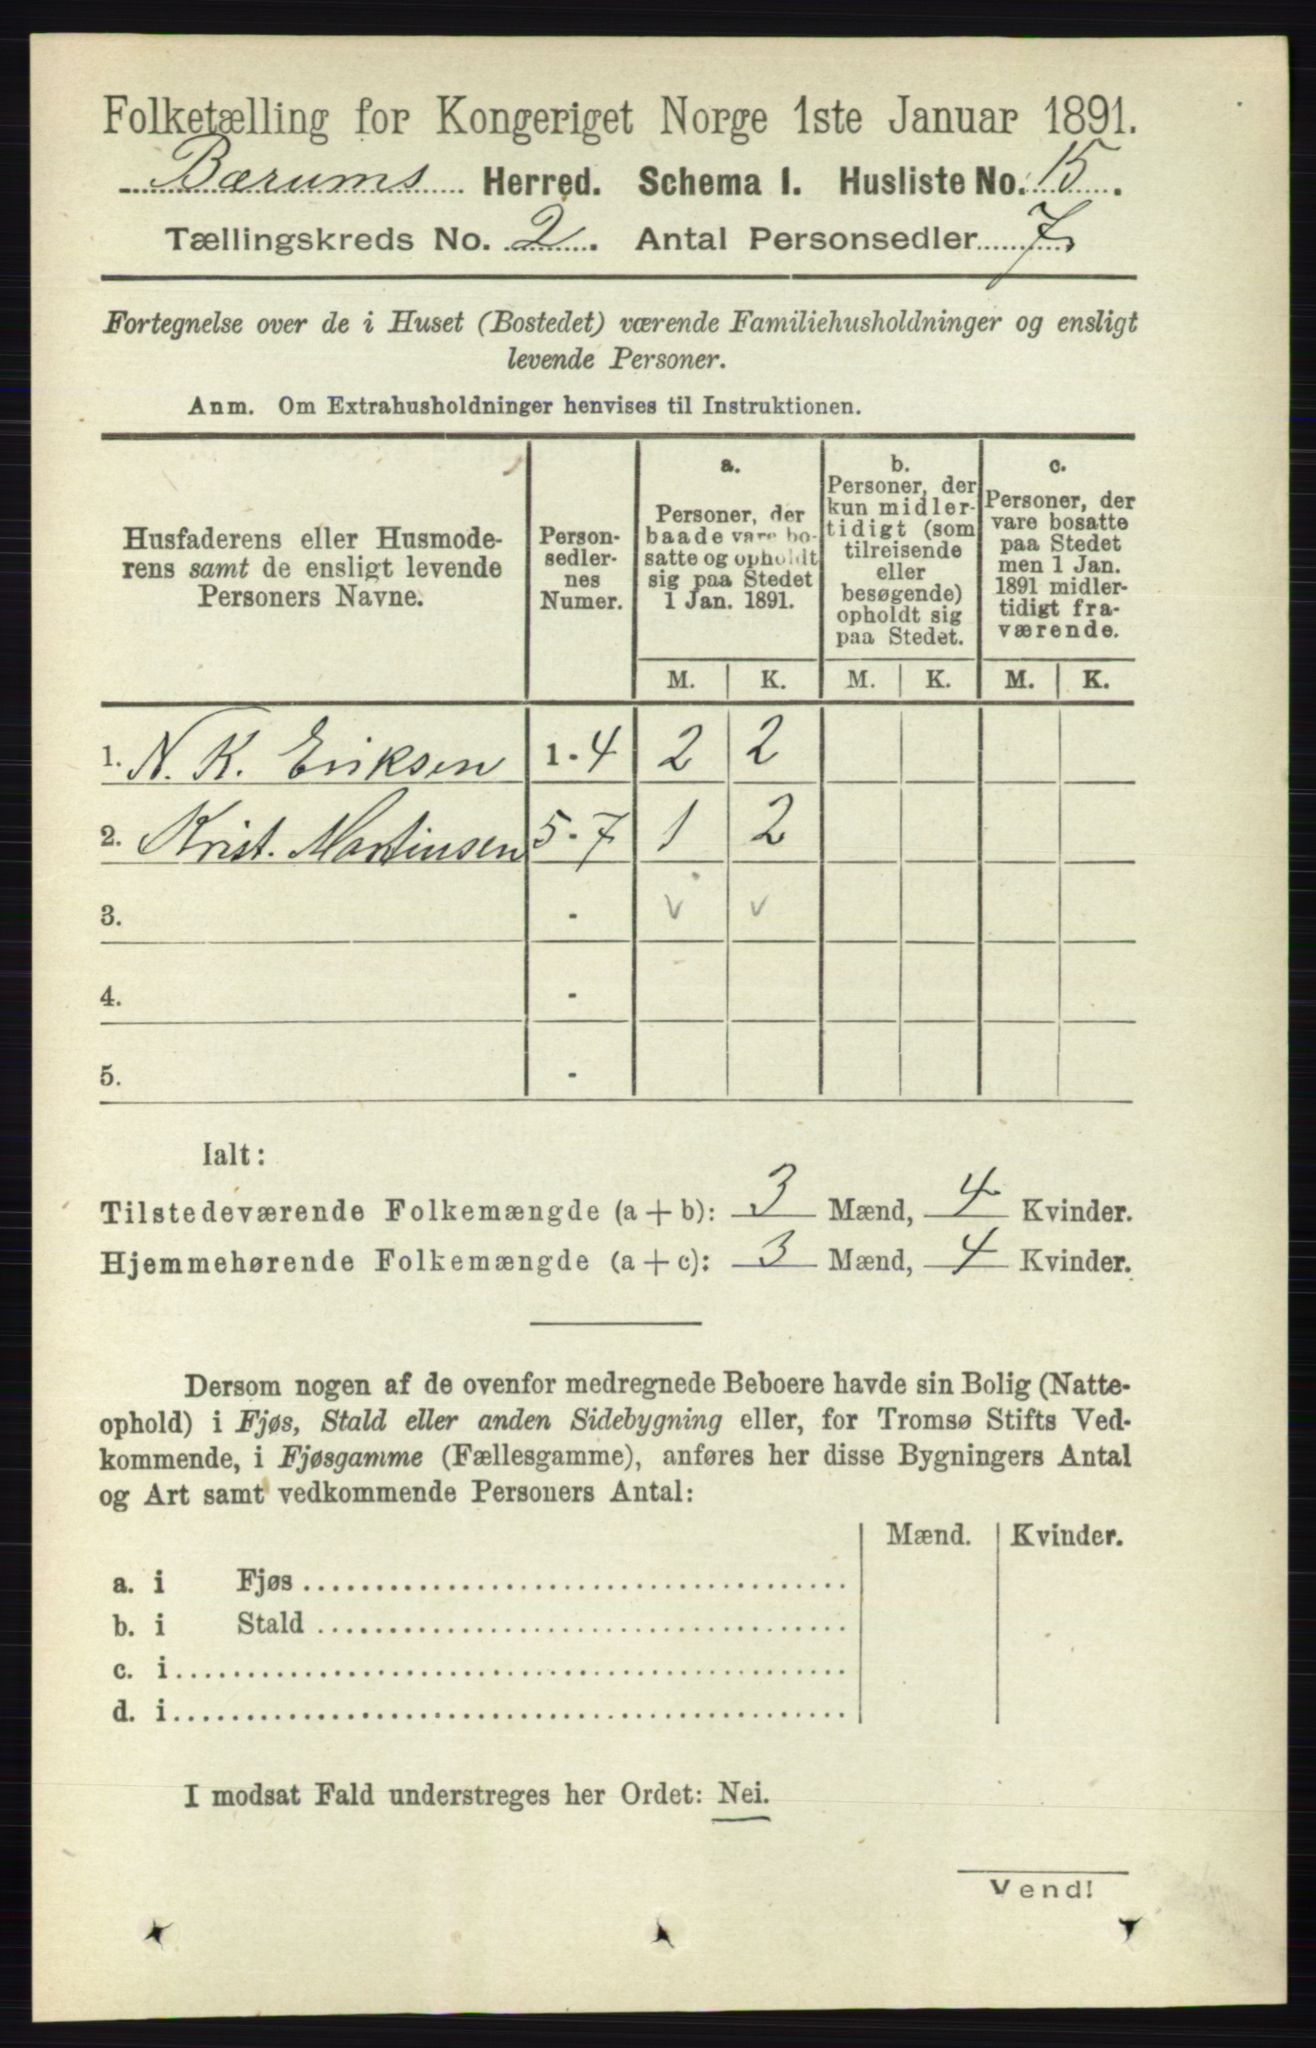 Folketælling for Kongeriget Norge 1ste Januar 1891.
Bærums Herred. Schema I. Husliste No. 15.
Tællingskreds No. 2. Antal Personsedler 7
Fortegnelse over de i Huset (Bostedet) værende Familiehusholdninger og ensligt
levende Personer.
Anm. Om Extrahusholdninger henvises til Instruktionen.
Husfaderens eller Husmode-
rens samt de ensligt levende
Personers Navne.
Person-
sedler-
nes
Numer.
a.
Personer, der
baade vare bo-
satte og opholdt
sig paa Stedet
1 Jan. 1891.
b.
Personer, der
kun midler-
tidigt (som
tilreisende
eller
besøgende)
opholdt sig
paa Stedet.
c.
Personer, der
vare bosatte
paa Stedet
men 1 Jan.
1891 midler-
tidigt fra-
værende.
M. K. M. K. M. K.
1. N. K. Eriksen 1-4 2 2
2. Krist. Martinsen 5-7 1 2
3. - v v
4. -
5. -
Ialt:
Tilstedeværende Folkemængde (a + b): 3 Mænd, 4 Kvinder.
Hjemmehørende Folkemængde (a + c): 3 Mænd, 4 Kvinder.
Dersom nogen af de ovenfor medregnede Beboere havde sin Bolig (Natte-
ophold) i Fjøs, Stald eller anden Sidebygning eller, for Tromsø Stifts Ved-
kommende, i Fjøsgamme (Fællesgamme), anføres her disse Bygningers Antal
og Art samt vedkommende Personers Antal:
Mænd. Kvinder.
a. i Fjøs
b. i Stald
c. i
d. i
I modsat Fald understreges her Ordet: Nei.
Vend!